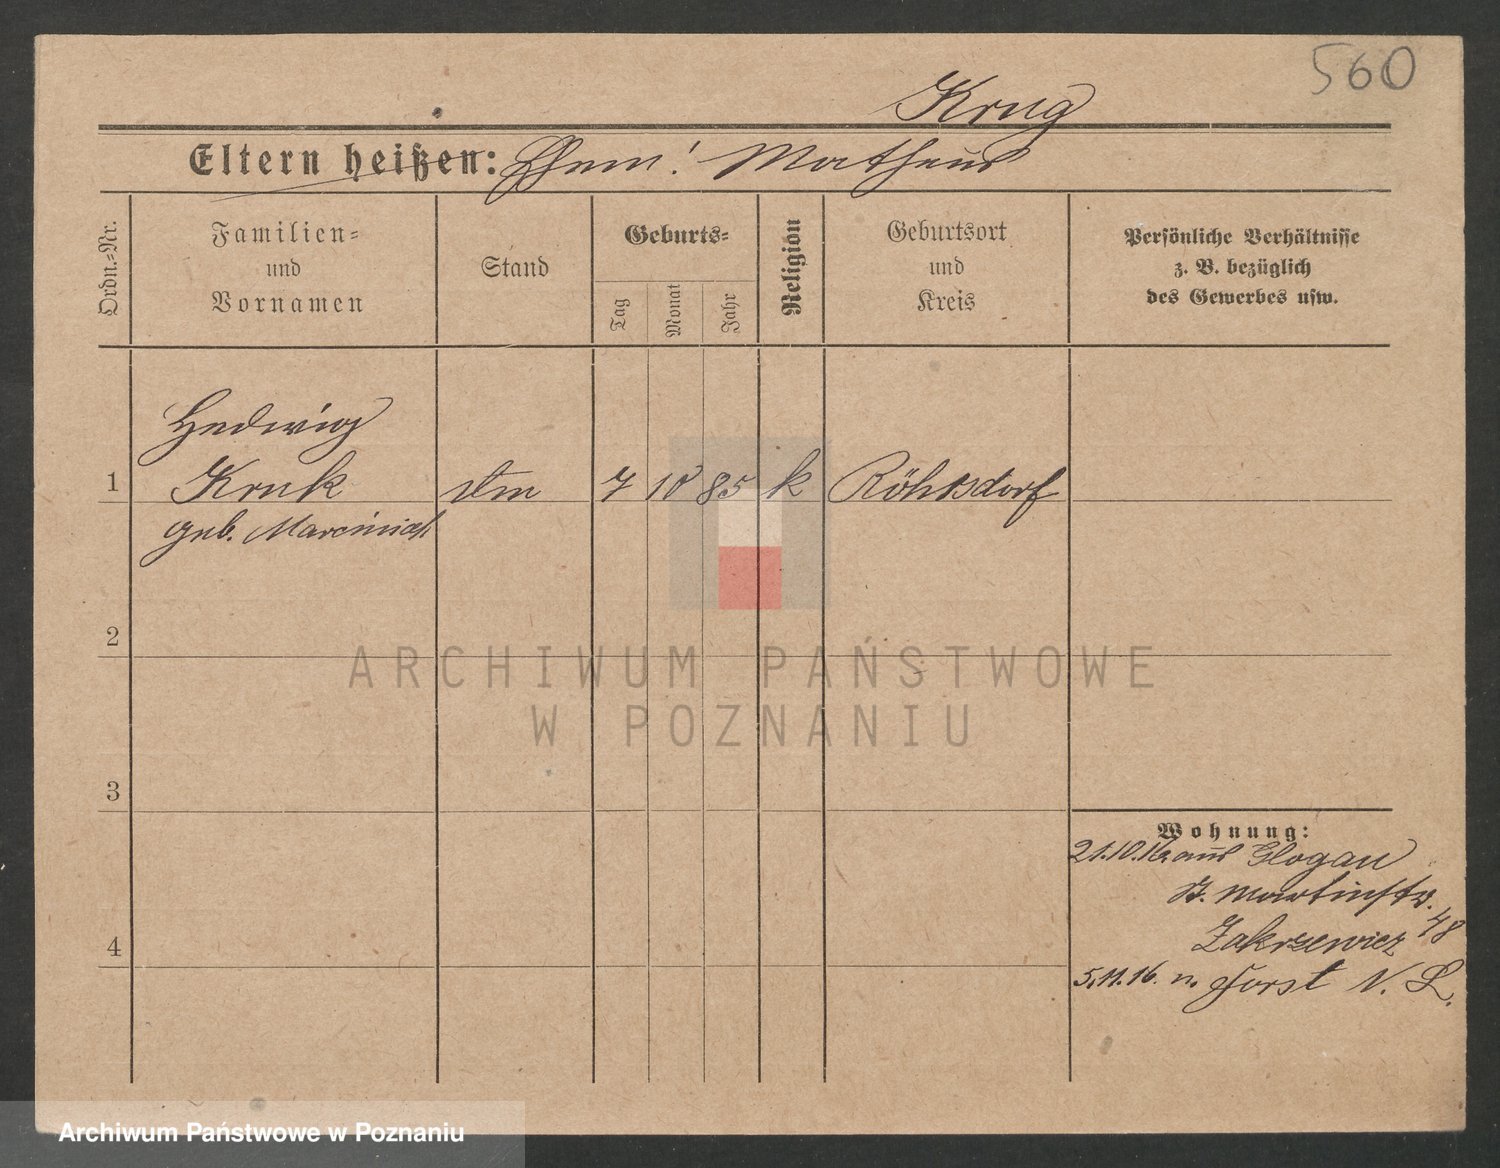 560
Krug
Eltern heißen: Ehem: Matheus
Ordn.-Nr.
Familien-
und
Vornamen
Stand
Geburts-
Tag
Monat
Jahr
Religion
Geburtsort
und
Kreis
Persönliche Verhältnisse
z. B. bezüglich
des Gewerbes usw.
Hedwig
1 Kruk 7 10 85 k Röhrsdorf
geb. Marciniak
2
3
4
Wohnung:
21.10.16 aus Glogau
St. Martinstr.
48
Zakrzewicz
5.11.16. n. Forst N. L.
ARCHIWUM PAŃSTWOWE
W POZNANIU
Archiwum Państwowe w Poznaniu